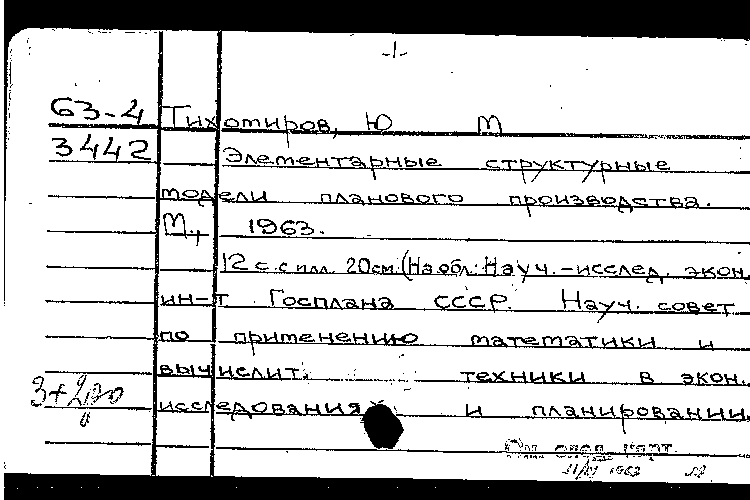 -1-
63-4 Тихомиров, Ю М
3442 Элементарные структурные
модели планового производства.
М., 1963.
12 с. с илл. 20см. (На обл.: Науч.-исслед. экон.
ин-т Госплана СССР. Науч. совет
по применению математики и
вычислит. техники в экон.
исследованиях и планировании.
См. след. карт.